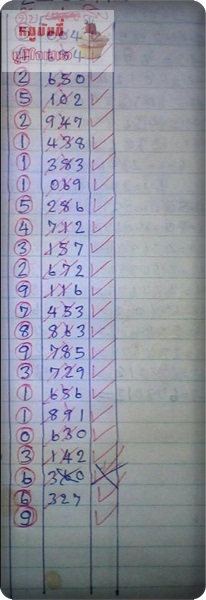 ② 650
⑤ 102
② 947
① 438
① 383
① 069
⑤ 286
④ 712
③ 157
② 672
⑨ 116
⑦ 453
⑧ 863
⑨ 785
③ 729
① 656
① 891
⓪ 630
③ 142
⑥ 360
⑥ 327
⑨